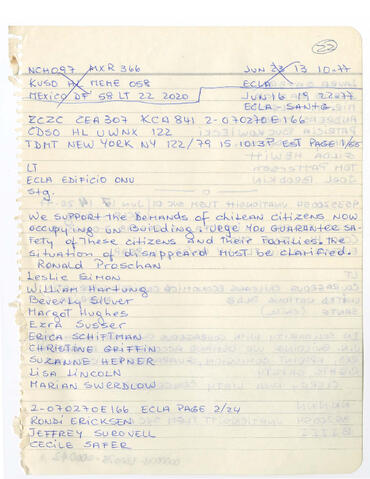 22
NCH097 MXR 366
JUN 13 10 77
KUSO HL MEME 058
ECLA
MEXICO DF 58 LT 22 2020
JUN 16 19 22677
ECLA - SANTG.
ZCZC CEA307 KCA841 2-070270E166
CDSO HL UWNX 122
TDMT NEW YORK NY 122/79 15 1013P EST PAGE 1/65
LT
ECLA EDIFICIO ONU
Stg.
We SUPPORT the Demands of chilean citizens now
occupying UN Building. Urge you guarantee sa-
fety of these citizens and their families. the
situation of disappeard must be clarified.
Ronald Proschan
Leslie Simon
William Hartung
Beverly Silver
Margot Hughes
Ezra Susser
ERICA SCHIFTMAN
CHRISTINE GRIFFIN
SUZANNE HEPNER
LISA LINCOLN
MARIAN SWERDLOW
2-070270E166 ECLA PAGE 2/24
RONDI ERICKSEN
JEFFREY SUROVELL
CECILE SAFER